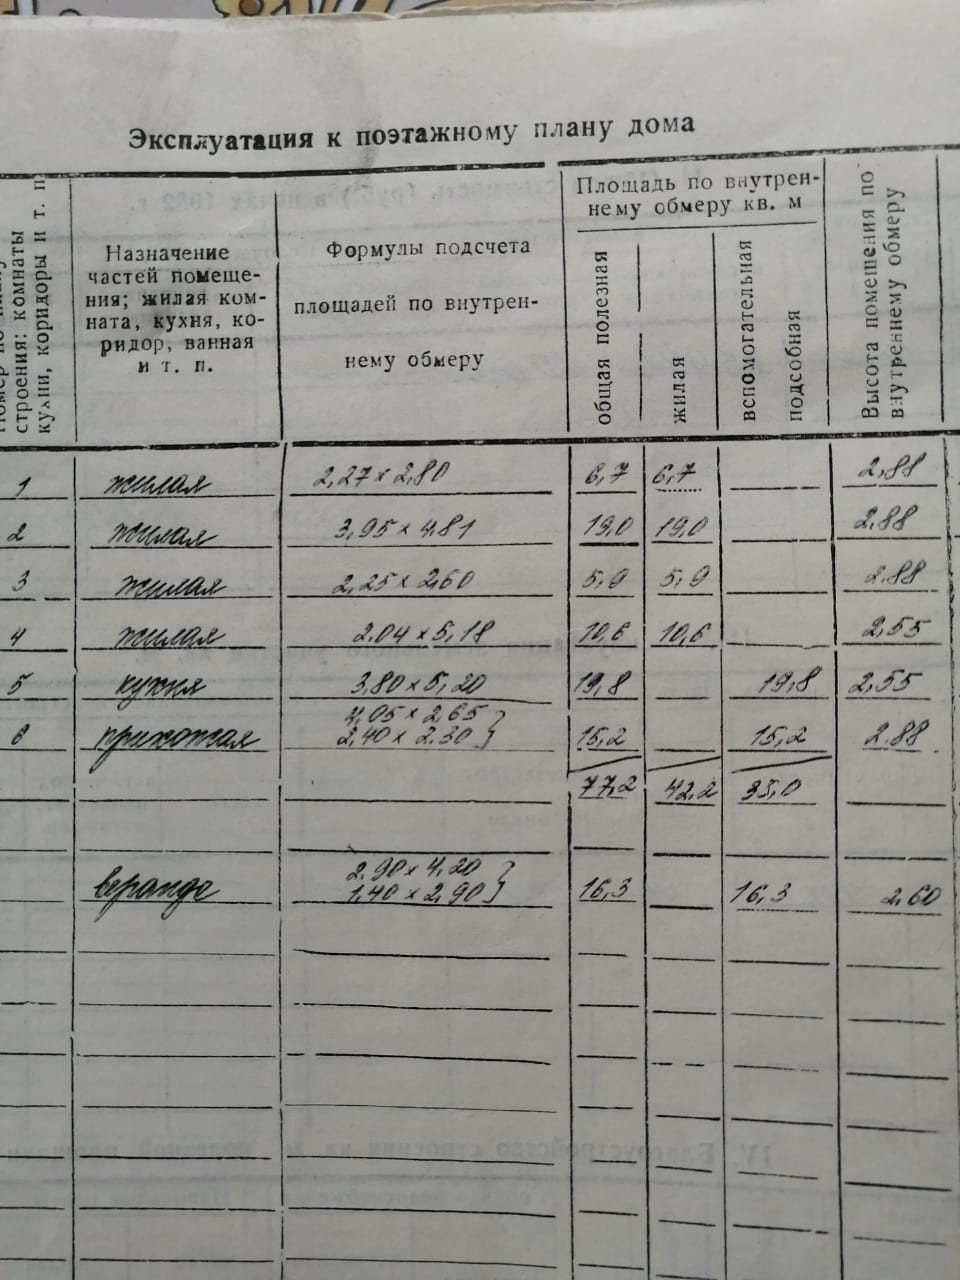 Эксплуатация к поэтажному плану дома
строения: комнаты
кухни, коридоры и т. п
Назначение
частей помеще-
ния; жилая ком-
ната, кухня, ко-
ридор, ванная
и т. п.
Формулы подсчета
площадей по внутрен-
нему обмеру
Площадь по внутрен-
нему обмеру кв. м
общая полезная
жилая
вспомогательная
подсобная
Высота помещения по
внутреннему обмеру
1 жилая 2,27 x 2,80 6,7 6,7 2,88
2 жилая 3,95 x 4,81 19,0 19,0 2,88
3 жилая 2,25 x 2,60 5,9 5,9 2.88
4 жилая 2.04 x 5,18 10,6 10,6 2,55
5 кухня 3,80 x 5,20 19,8 19,8 2,55
4,05 x 2,65
6 прихожая 2,40 x 2.30 15,2 15,2 2.88
77,2 42,2 35,0
2,90 x 4,20
веранда 1,40 x 2,90 16,3 16,3 2,60
IV. Благоустройство строения кв. м. полезной площади